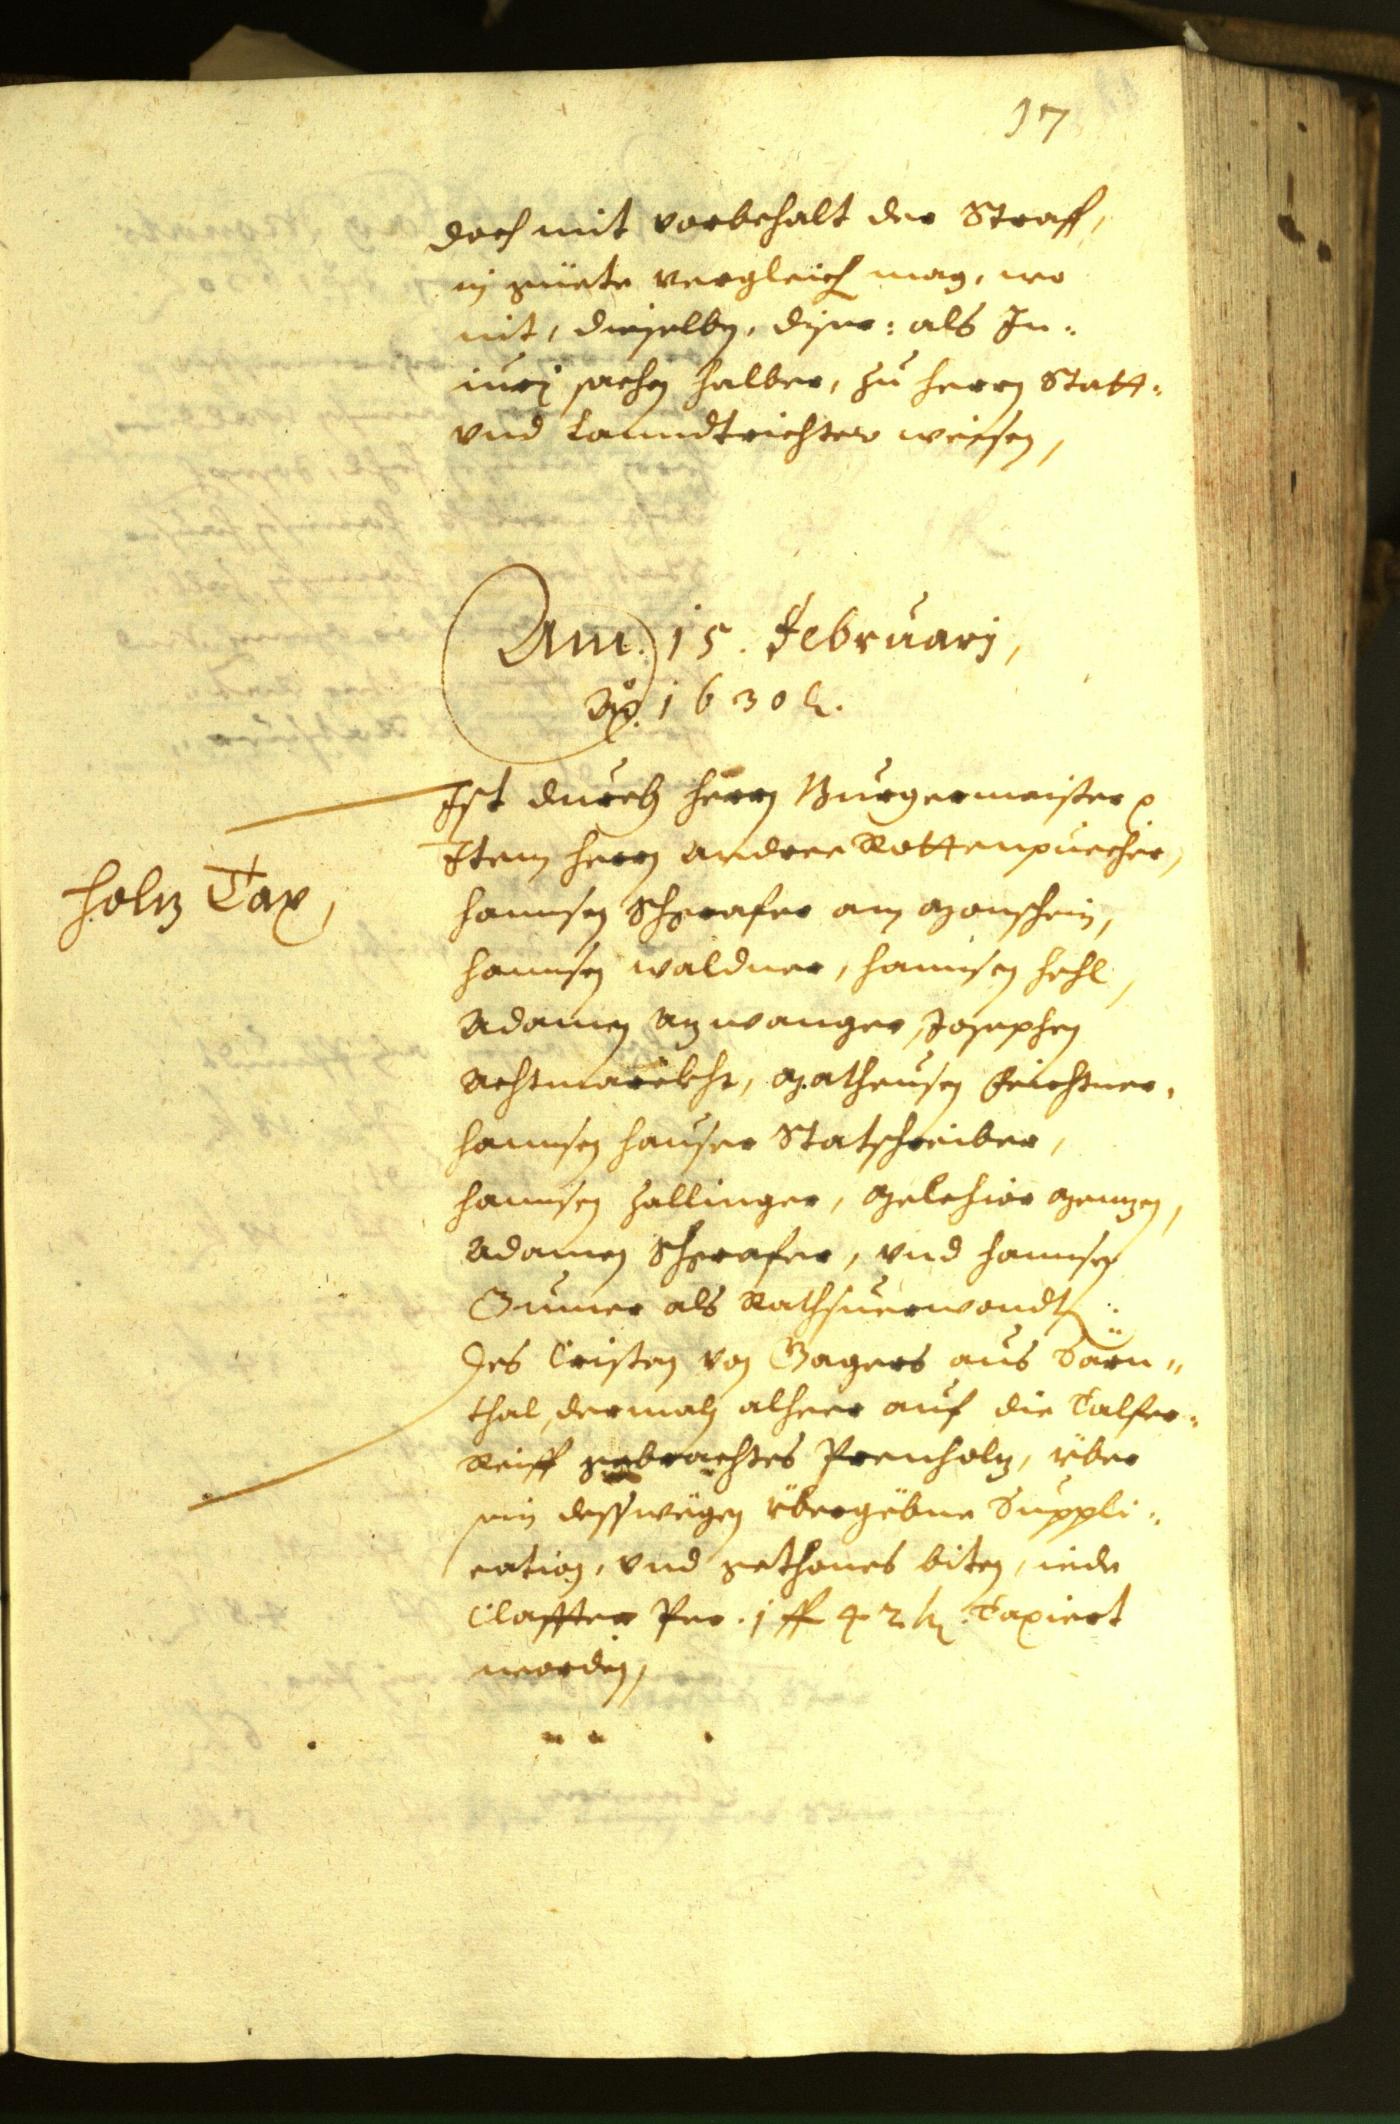 17
doch mit vorbehalt der Straff,
in güete vergleich mag, wo
nit, dieselben, diser: als In=
iurj sachen halber, zu herrn Statt=
vnd Lanndtrichter weisen,
Am. 15. Februarj,
Aō. 1630 ꝛ.
Ist durch herrn Burgermaister ꝛ
Item herrn Andree Rottenpuecher,
hannsen Schgrafer am Monschein,
hannsen Waldner, hannsen hehl,
Adamen Anwanger, Josephen
Achtmarckht, Matheusen Feichtner,
hannsen hauser Statschreiber,
hannsen Zallinger, Melchior Menzen,
Adamen Schgrafer, vnd hannsen
Gumer als Rathsuerwondt:
holz Tax,
des Cristen von Gagers aus Särn=
thal, dermaln alheer auf die Talfer=
Reiff gebrachtes Prenholz, über
sein desswegen übergebne Suppli=
cation, vnd gethones biten, iede
Claffter Per. 1 ff 42 kr. Taxiert
worden,